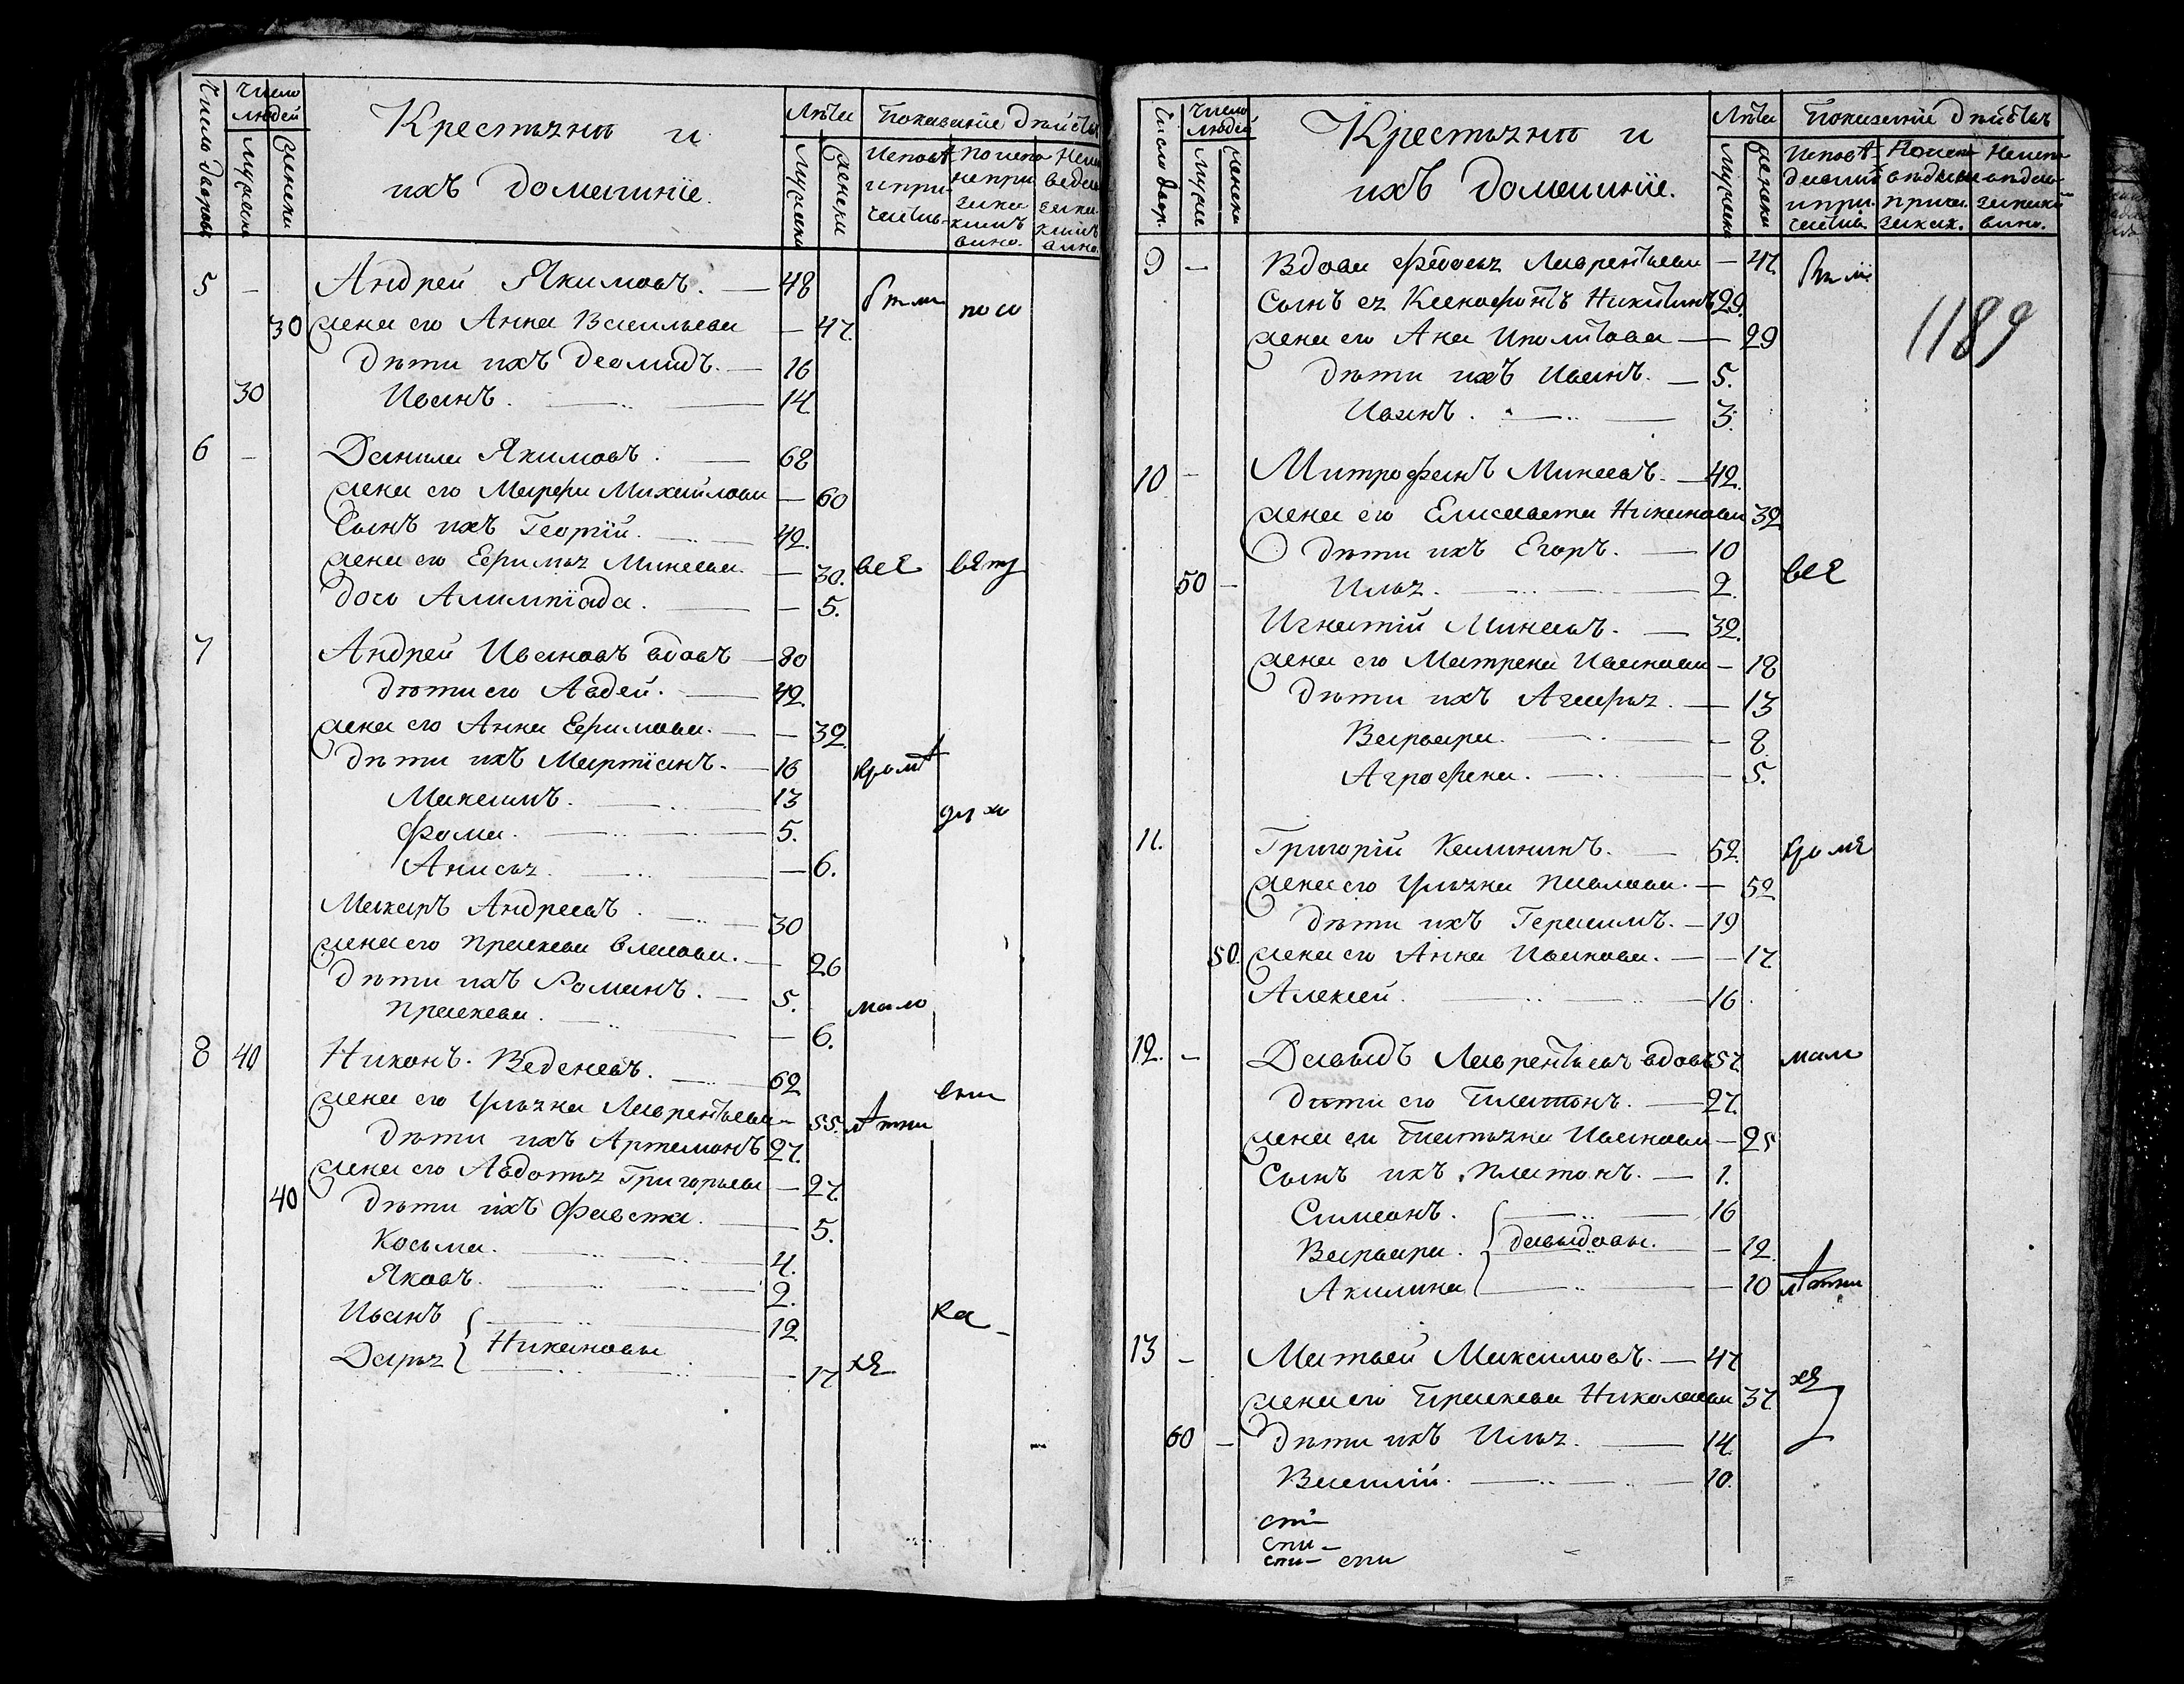 Число дворовъ
Число людей
Крестьянъ и ихъ домашніе.
Лѣта
Показаніе дѣйства
Мужеска
Женска
Мужеска
Женска
5 – Андрей Якимовъ. — 48
30 жена его Анна Васильева — 47.
дѣти ихъ Деомидъ. — 16
30 Иванъ. — 14
6 – Данила Якимовъ. — 68
жена его Марфа Михайлова — 60
Сынъ ихъ Георгій. — 42.
жена его Ефимья Минеева. — 30. всѣ
дочь Алимпіада. — 5.
7 Андрей Ивановъ вдовъ — 80
дѣти его Авдей. — 42.
жена его Анна Ефимова. — 32.
дѣти ихъ Мартіанъ. — 16 кромѣ
Максимъ. — 13
Фома. — 5.
Анисья. — 6.
Макаръ Андреевъ. — 30
жена его Праскева Власова. — 26
дѣти ихъ Романъ. — 5. мало
Праскева. — 6.
8 40 Никонъ Веденеевъ. — 62
жена его Ульяна Лаврентьева — 55. лѣтни
дѣти ихъ Артемонъ 27.
жена его Авдотья Григорьева — 27.
40 дѣти ихъ Фавста. — 5.
Косьма. — 4.
Яковъ. — 2.
Иванъ — 12
Никановы
Дарья — 17 хъ
Число двор.
Число людей
Крестьянъ и ихъ домашніе.
Лѣта
Показаніе дѣйства
Мужс
Женска
Мужеска
Женска
9 – Вдова Федосья Лаврентьева — 47.
Сынъ ея Ксенофонтъ Никитинъ 29.
1189
жена его Ана Иполитова — 29
дѣти ихъ Иванъ. — 5.
Иванъ. — 3.
10 – Митрофанъ Минеевъ. — 42.
жена его Елисавета Никанова 32
дѣти ихъ Егоръ. — 10
50 – Илья. — 2. всѣ
Игнатій Минеевъ. — 32.
жена его Матрена Иванова — 18
дѣти ихъ Агафья. — 13
Варвара. — 8.
Агрофена. — 5.
11. Григорій Калининъ. — 52. кромѣ
жена его Ульяна Павлова. — 52
дѣти ихъ Герасимъ. — 19
50. жена его Анна Иванова. — 17.
Алексей. — 16
12. – Давыдъ Лаврентьевъ вдовъ 57. мало
дѣти его Платонъ. — 27.
жена его Татьяна Иванова — 25
Сынъ ихъ Платонъ. — 1.
Симеонъ. — 16
Варвара. давыдовы. — 12
Акилина — 10 лѣтни
13 – Матвей Максимовъ. — 47
жена его Праскева Николаева 37. хъ
60 – дѣти ихъ Илья. — 14.
Василій. — 10.